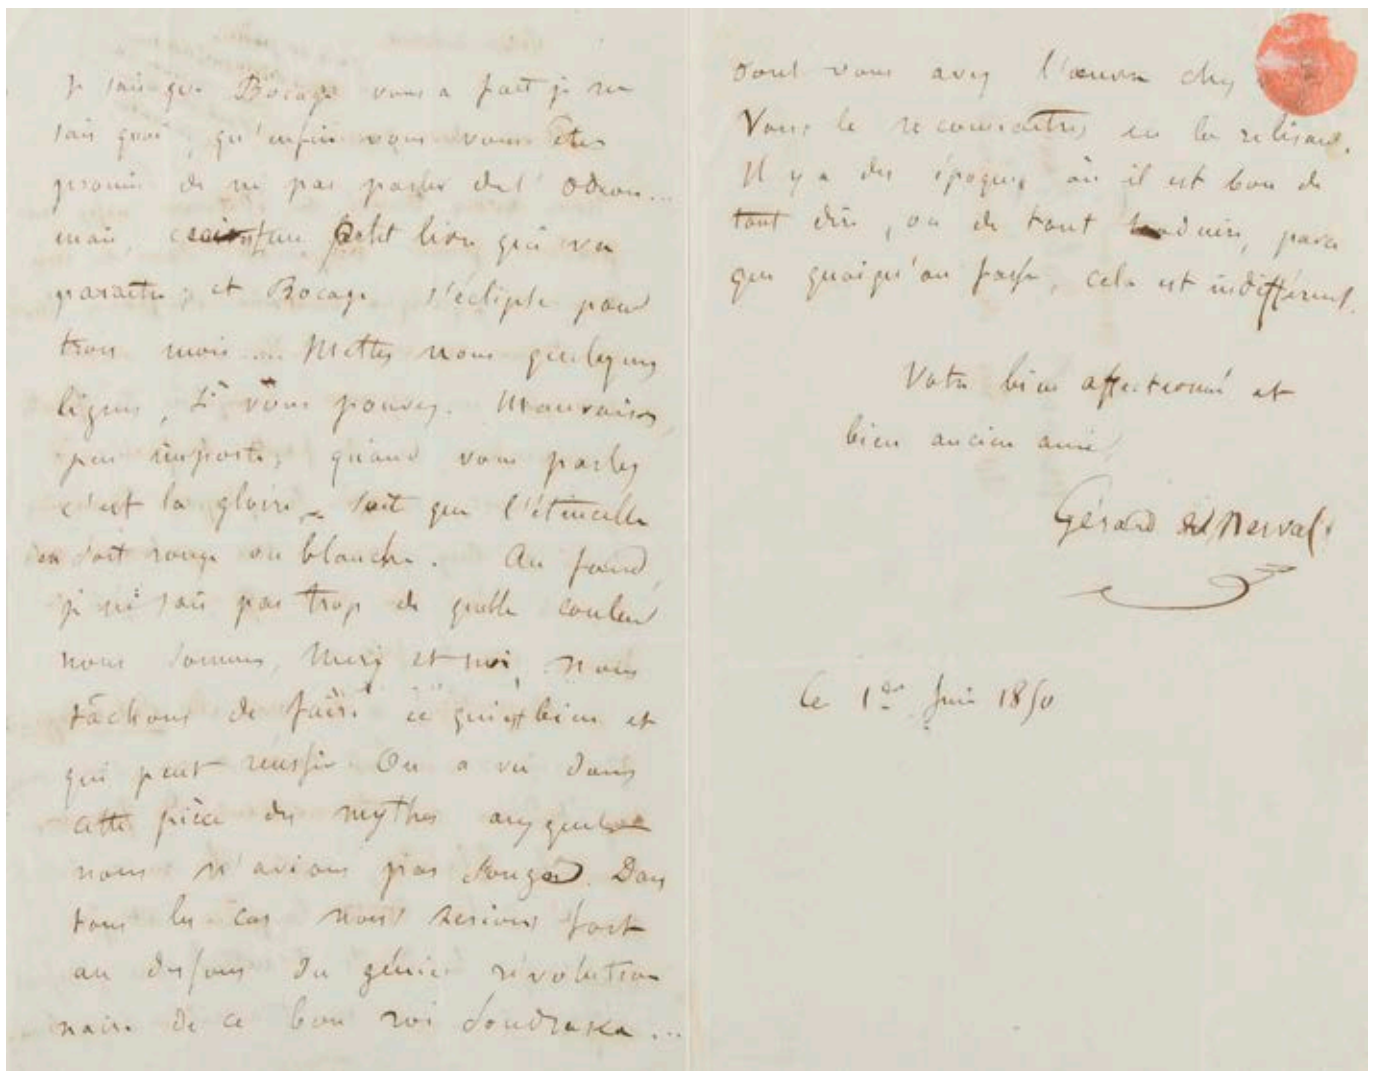 Je sais que Bocage vous a fait je ne
sais quoi, qu'enfin vous vous êtes
promis de ne pas parler de l'Odéon...
mais, petit livre qui va
paraître; et Bocage s'éclipse pour
trois mois... Mettez nous quelques
lignes, si vous pouvez. Mauvaises,
peu importe; quand vous parlez
c'est la gloire, – soit que l'étincelle
en soit rouge ou blanche. Au fond,
je ne sais pas trop de quelle couleur
nous sommes, Méry et moi, nous
tâchons de faire ce qui est bien et
qui peut réussir. On a vu dans
cette pièce des mythes auxquels
nous n'avions pas songé. Dans
tous les cas nous serions fort
au dessous du génie révolution
naire de ce bon roi Soudraka...
dont vous avez l'œuvre chez
Vous le reconnaîtrez en la relisant.
Il y a des époques où il est bon de
tout dire, ou de tout traduire, parce
que quoiqu'on fasse, cela est indifférent.
Votre bien affectionné et
bien ancien ami
Gérard de Nerval
le 1er Juin 1850